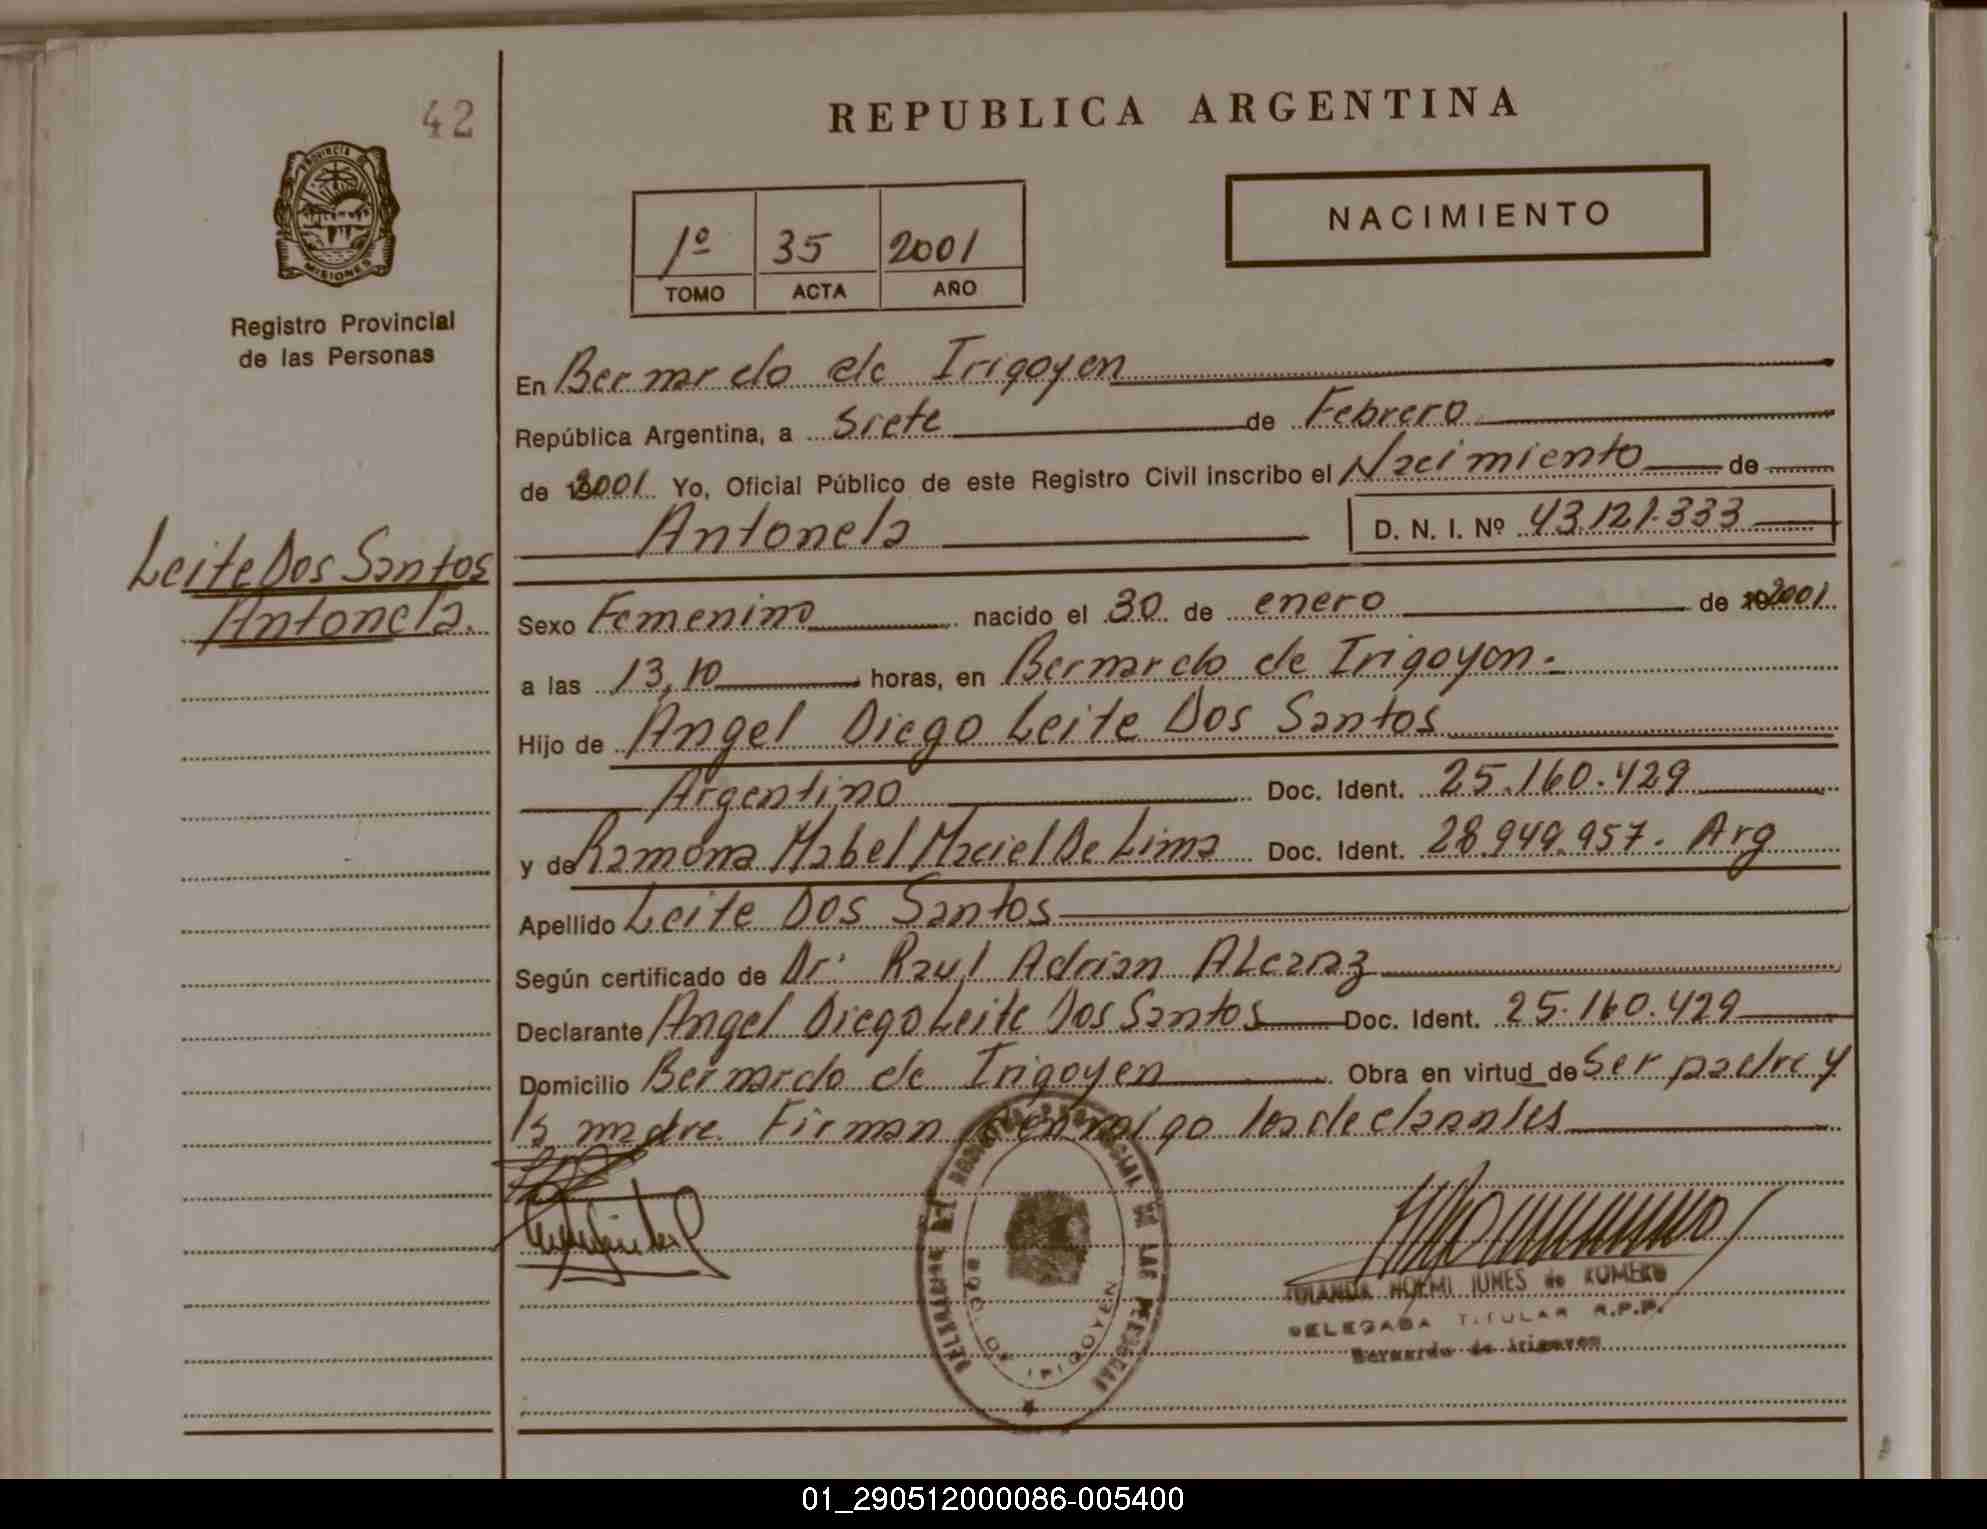 42
REPUBLICA ARGENTINA
PROVINCIA DE
MISIONES
Registro Provincial
de las Personas
1º 35 2001
TOMO ACTA AÑO
NACIMIENTO
En Bernardo de Irigoyen
República Argentina, a Siete de Febrero
de 2001 Yo, Oficial Público de este Registro Civil inscribo el Nacimiento de
Antonela D. N. I. Nº 43.121.333
Leite Dos Santos
Antonela.
Sexo Femenino nacido el 30 de enero de 2001
a las 13,10 horas, en Bernardo de Irigoyen.
Hijo de Angel Diego Leite Dos Santos
Argentino Doc. Ident. 25.160.429
y de Ramona Mabel Maciel De Lima Doc. Ident. 28.949.957. Arg
Apellido Leite Dos Santos
Según certificado de Dr. Raul Adrian Alcaraz
Declarante Angel Diego Leite Dos Santos Doc. Ident. 25.160.429
Domicilio Bernardo de Irigoyen Obra en virtud de Ser padre y
la madre. Firman conmigo los declarantes
DELEGACION DEL REGISTRO PROVINCIAL DE LAS PERSONAS
BDO. DE IRIGOYEN
YOLANDA NOEMI JUNES de ROMERO
DELEGADA TITULAR R.P.P.
Bernardo de Irigoyen
01_290512000086-005400